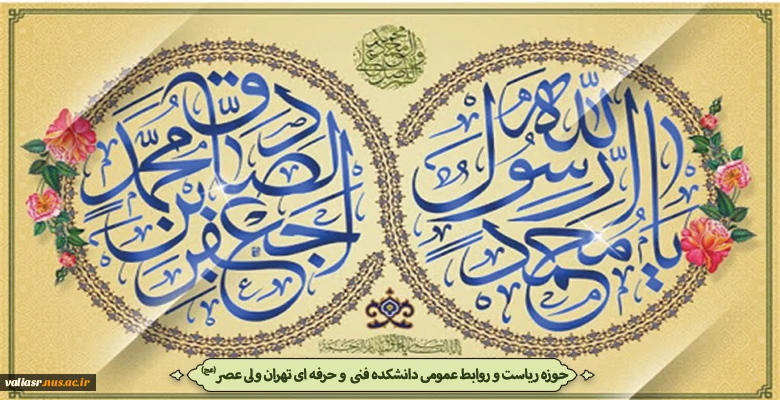 یا محمد رسول الله
یا جعفر بن محمد الصادق
حوزه ریاست و روابط عمومی دانشکده فنی و حرفه ای تهران ولی عصر (عج)
valiasr.nus.ac.ir